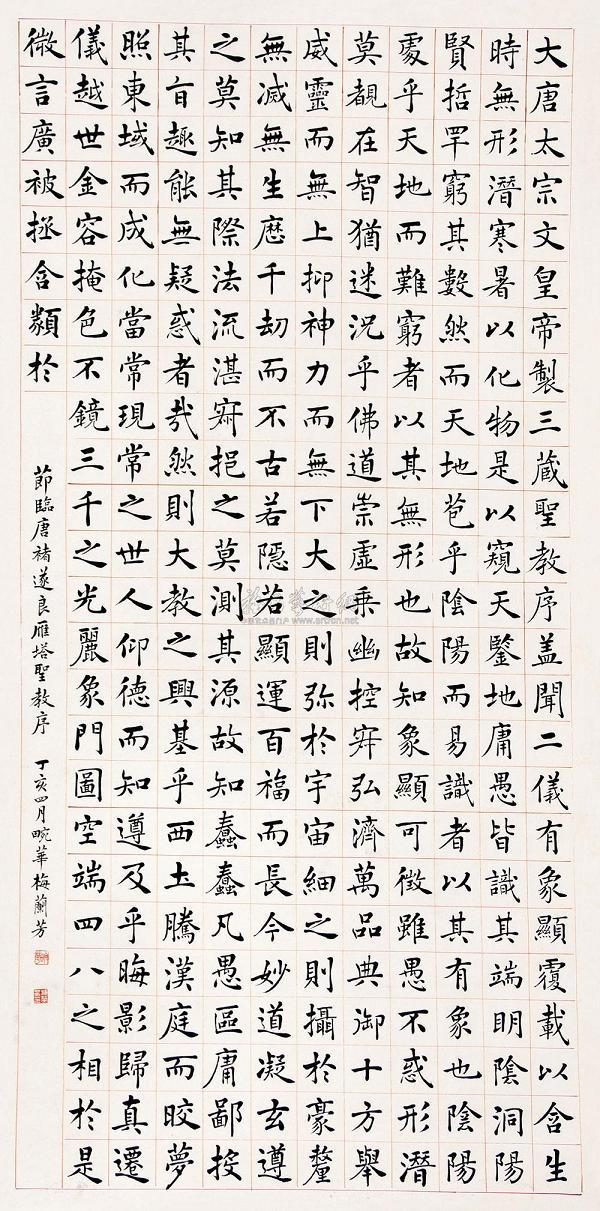 大唐太宗文皇帝製三蔵聖教序盖聞二儀有象顯覆載以含生
時無形潛寒暑以化物是以窺天鑒地庸愚皆識其端明陰洞陽
賢哲罕窮其數然而天地苞乎陰陽而易識者以其有象也陰陽
處乎天地而難窮者以其無形也故知象顯可徵雖愚不惑形潛
莫覩在智猶迷況乎佛道崇虛乗幽控寂弘濟萬品典御十方舉
威靈而無上抑神力而無下大之則弥於宇宙細之則攝於豪釐
無滅無生歷千劫而不古若隱若顯運百福而長今妙道凝玄遵
之莫知其際法流湛寂挹之莫測其源故知蠢蠢凡愚區庸鄙投
其旨趣能無疑惑者哉然則大教之興基乎西土騰漢庭而皎夢
照東域而成化當常現常之世人仰德而知遵及乎晦影歸真遷
儀越世金容掩色不鏡三千之光麗象門圖空端四八之相於是
微言廣被拯含類於
節臨唐褚遂良雁塔聖教序 丁亥四月畹華梅蘭芳
www.artron.net